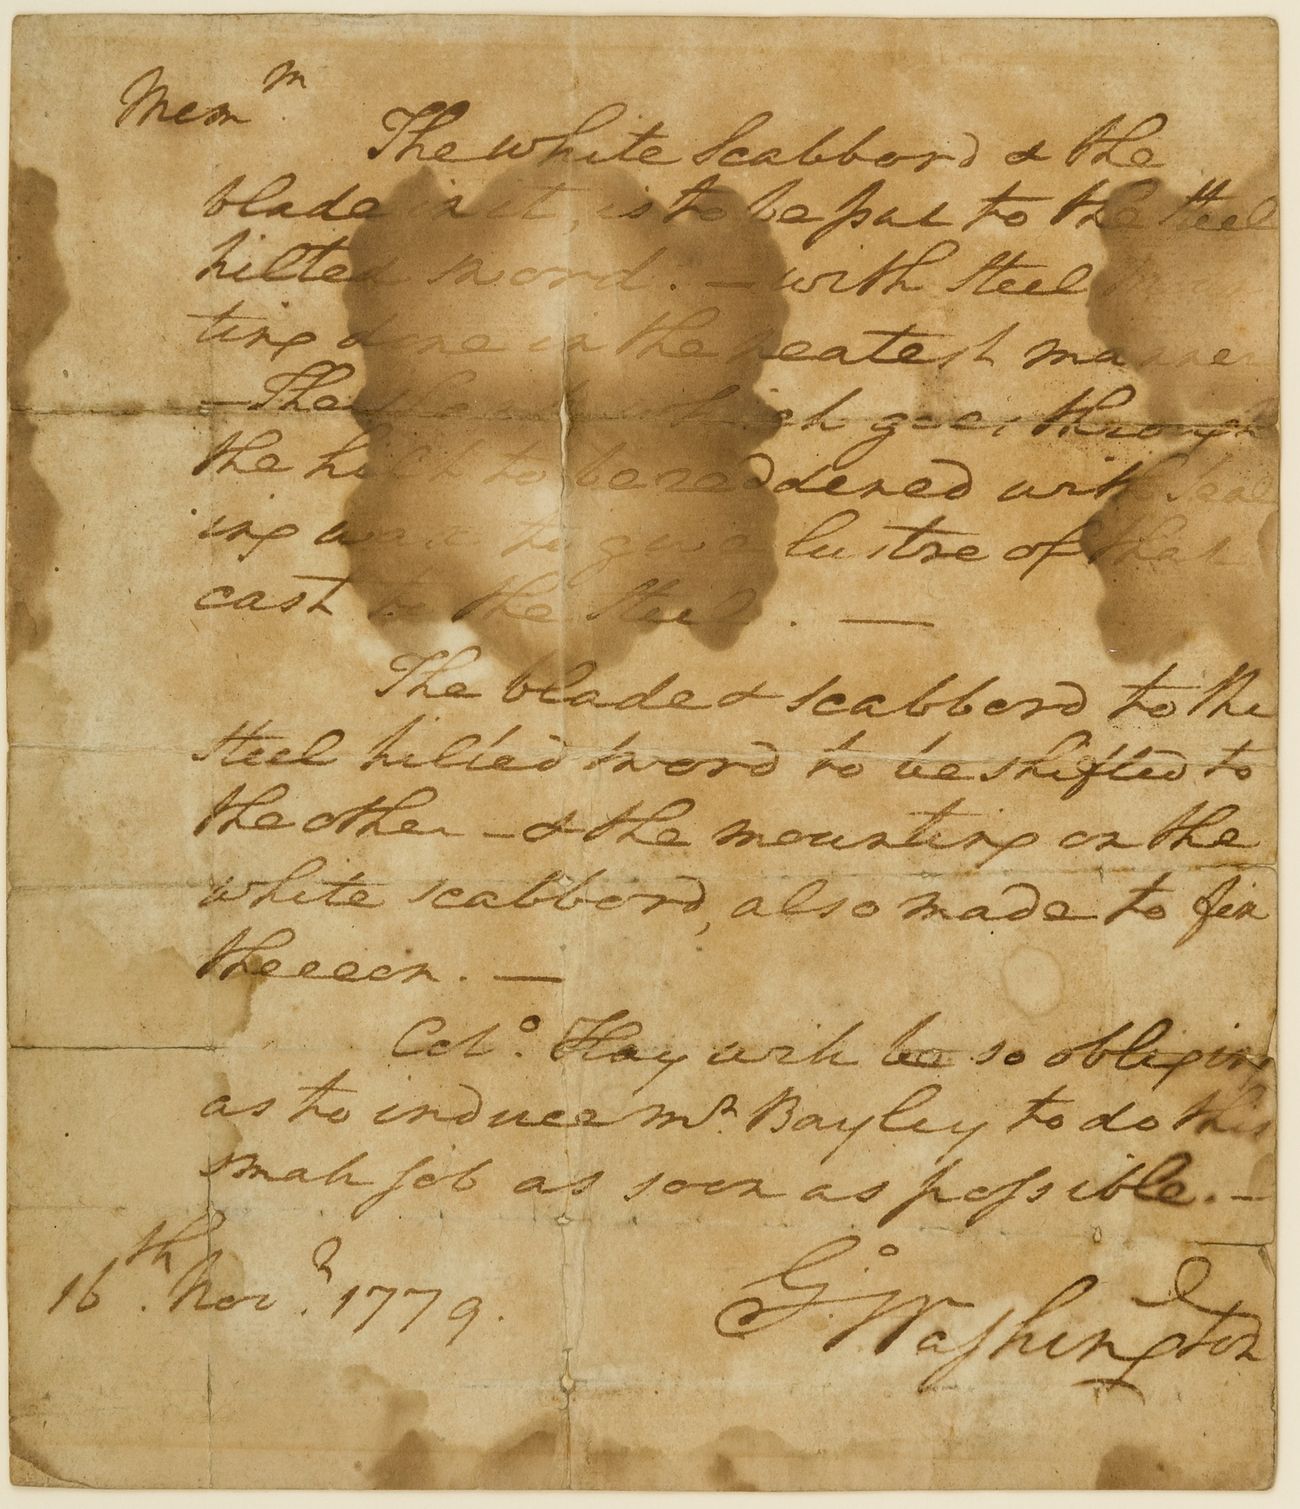 Mem.m
The white Scabbord & the
blade in it, is to be put to the steel
hilted sword. — with steel
ting done in the neatest manner
— The which goes through
the hilt to be reddened with Seal
ing wax to give lustre of that
cast to the steel. —
The blade & scabbord to the
steel hilted sword to be shifted to
the other — & the mounting on the
white scabbord, also made to fix
thereon. —
Colo. Hay will be so obliging
as to induce Mr. Bayley to do this
small job as soon as possible. —
Go. Washington
16th. Novr. 1779.